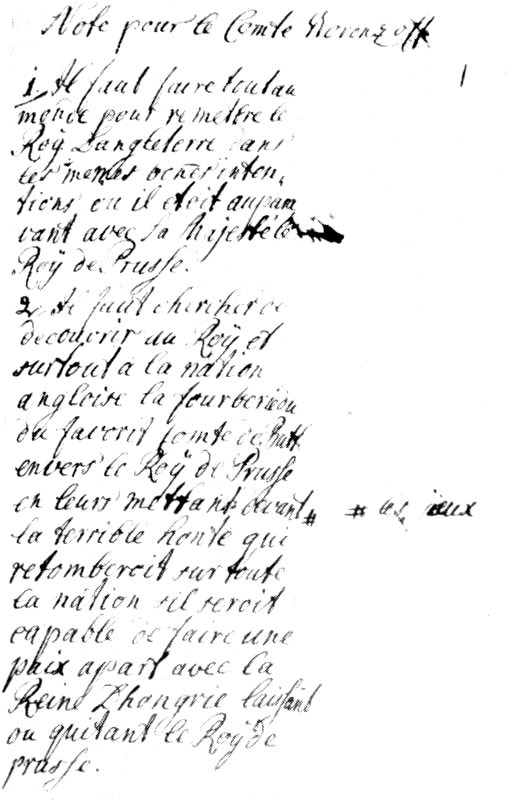 Note pour le Comte Woronzoff
1
1. Il faut faire tout au
monde pour remettre le
Roÿ D'angleterre dans
les mêmes bones inten
tions ou il etoit aupara
vant avec Sa Majesté le
Roÿ de Prusse.
2. Il faut chercher de
decouvrir au Roÿ et
surtout a la nation
angloise la fourberie
du favorit Comte de Butt
envers le Roÿ de Prusse
en leurs mettant devant # # les ieux
la terrible honte qui
retomberoit sur toute
la nation sil seroit
capable de faire une
paix apart avec la
Reine D'hongrie laissant
ou quitant le Roÿ de
prusse.